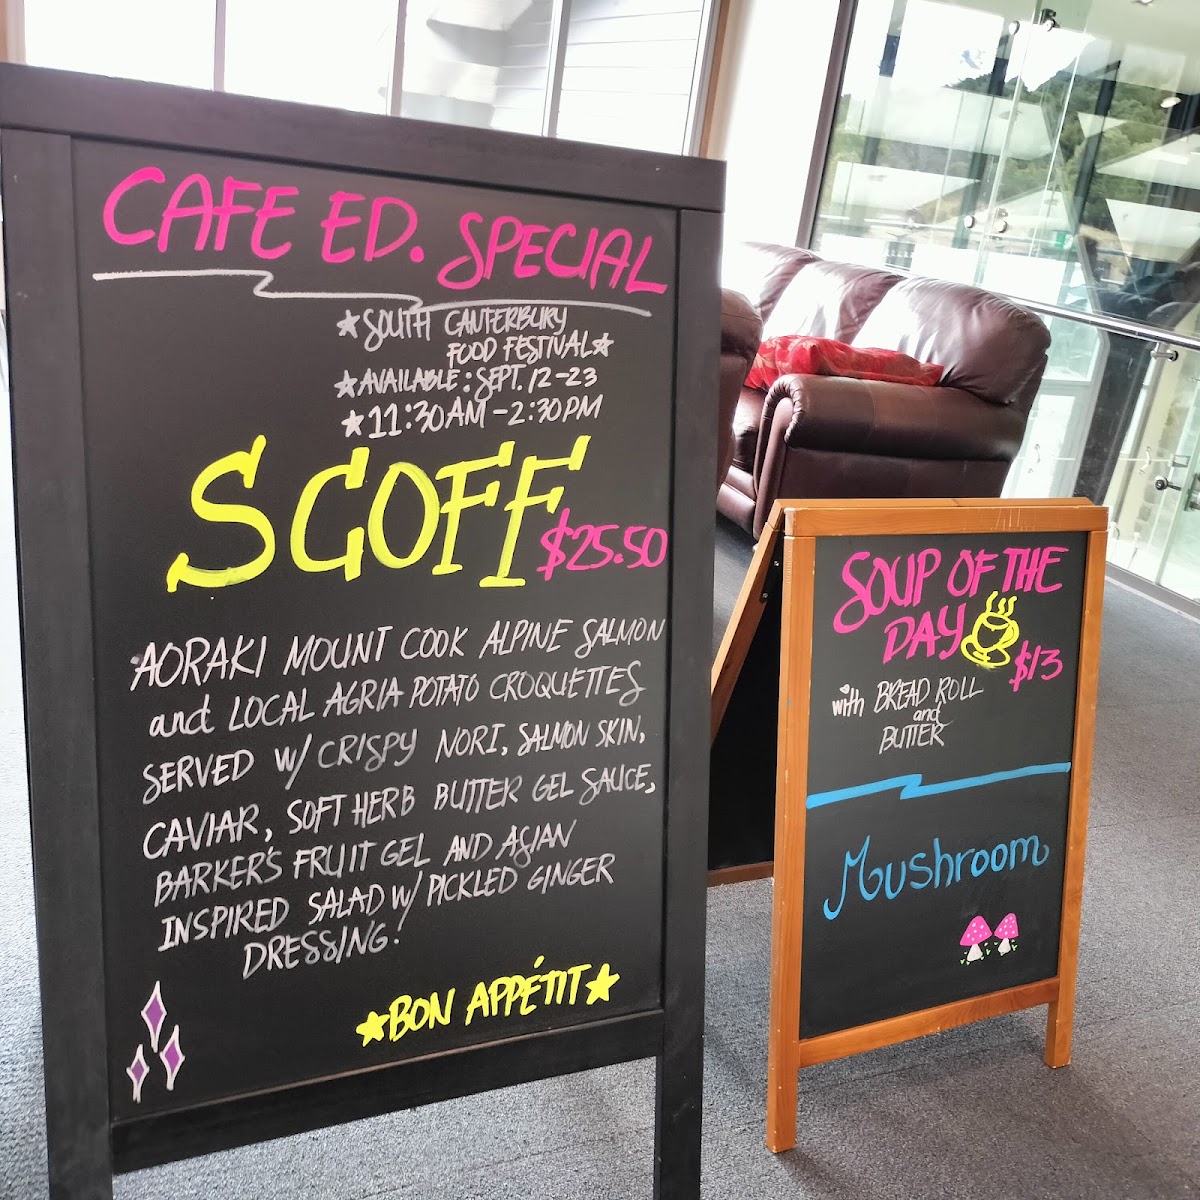 CAFE ED. SPECIAL
★SOUTH CANTERBURY
FOOD FESTIVAL★
★AVAILABLE: SEPT. 12-23
★11:30AM-2:30PM
SCOFF $25.50
AORAKI MOUNT COOK ALPINE SALMON
and LOCAL AGRIA POTATO CROQUETTES
SERVED W/ CRISPY NORI, SALMON SKIN,
CAVIAR, SOFT HERB BUTTER GEL SAUCE,
BARKER'S FRUIT GEL AND ASIAN
INSPIRED SALAD W/ PICKLED GINGER
DRESSING!
★BON APPÉTIT★
SOUP OF THE
DAY $13
with BREAD ROLL
and
BUTTER
Mushroom